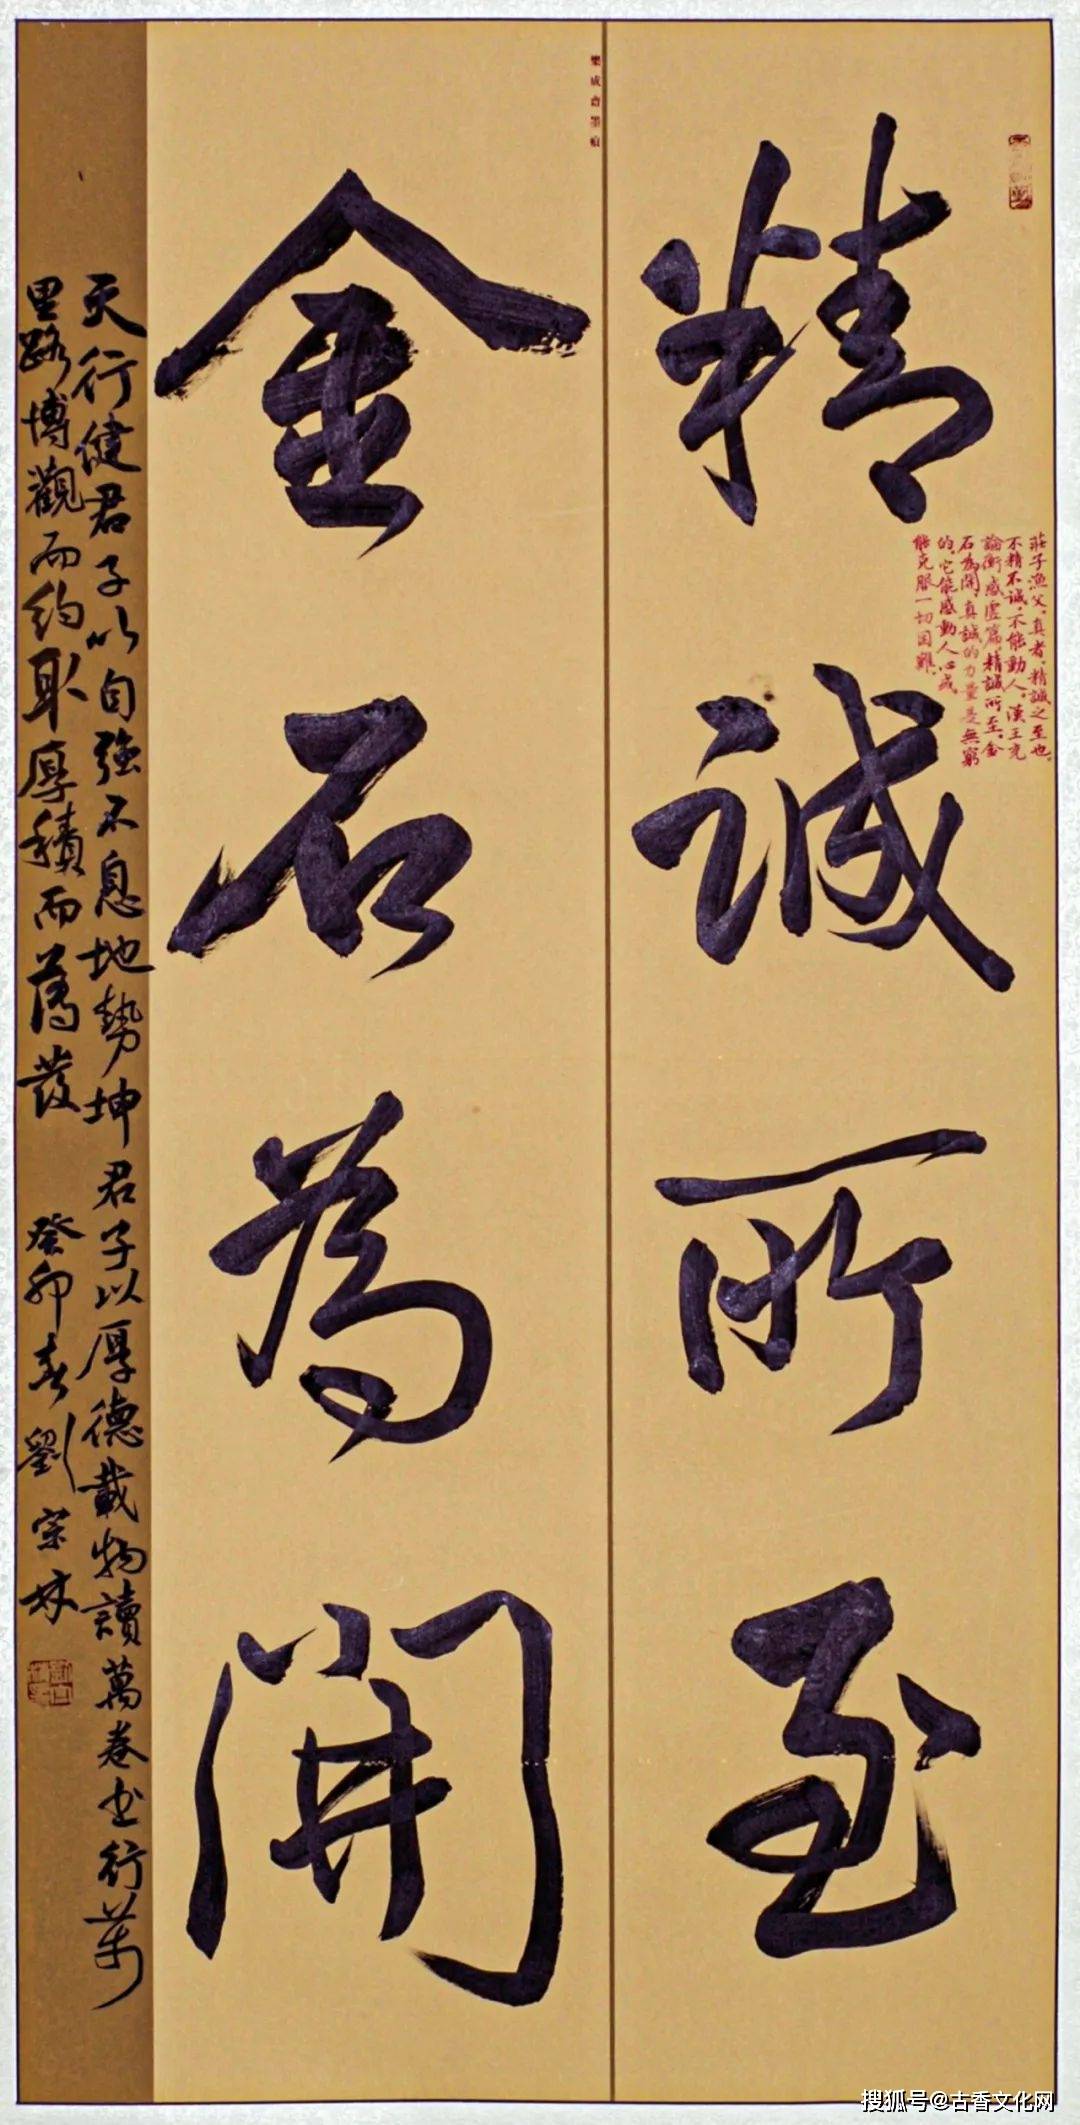 精誠所至
金石為開
莊子漁父。真者。精誠之至也。
不精不誠。不能動人。漢王充
論衡感虛篇。精誠所至。金
石為開。真誠的力量是無窮
的。它能感動人心或
能克服一切困難。
樂成齋墨痕
天行健君子以自強不息地勢坤君子以厚德載物讀萬卷書行萬
里路博觀而約取厚積而薄發
癸卯春劉宗林
搜狐号@古香文化网